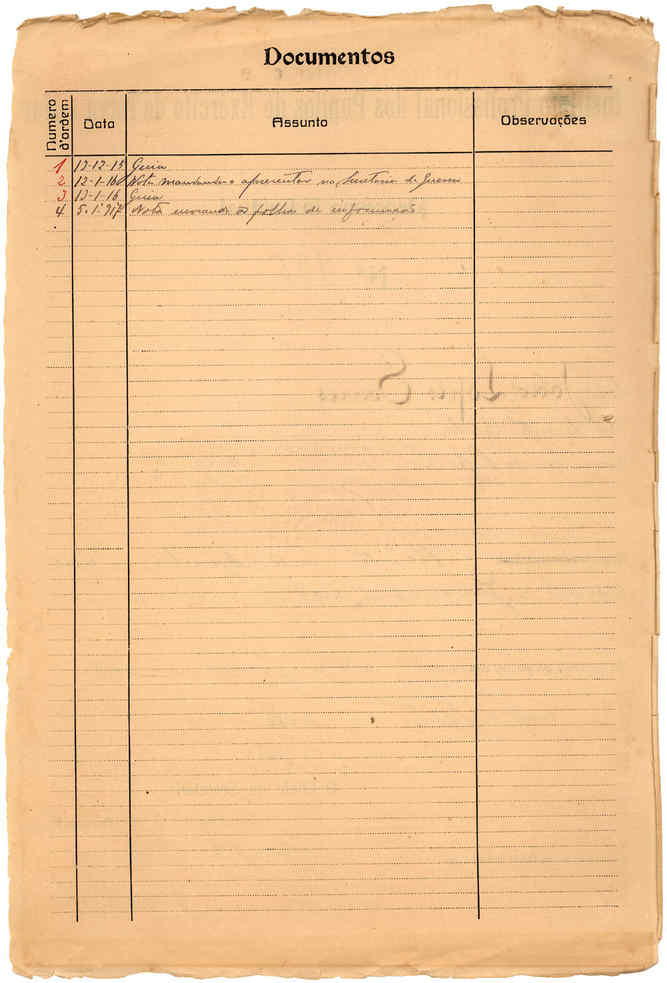 Documentos
Numero d'ordem Data Assunto Observações
1 13-12-15 Guia
2 12-1-16 Nota mandando-o apresentar na Secretaria da Guerra
3 13-1-16 Guia
4 5-1-917 Nota enviando a folha de informação